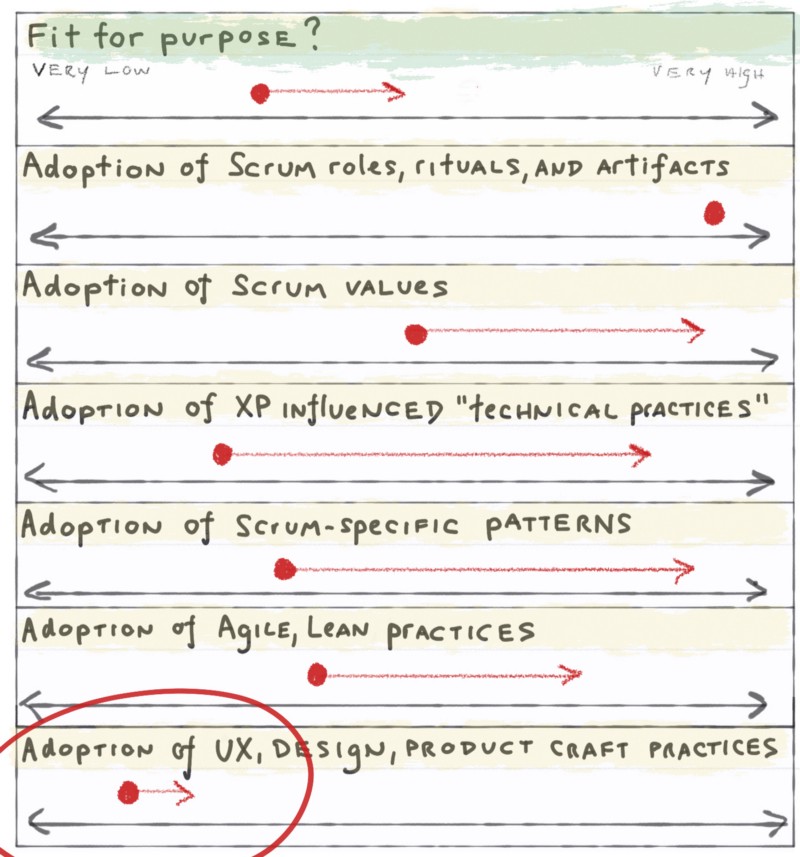 Fit for purpose?
VERY LOW VERY HIGH
Adoption of Scrum roles, rituals, and artifacts
Adoption of Scrum values
Adoption of XP influenced "technical practices"
Adoption of Scrum-specific patterns
Adoption of Agile, Lean practices
Adoption of UX, Design, product craft practices